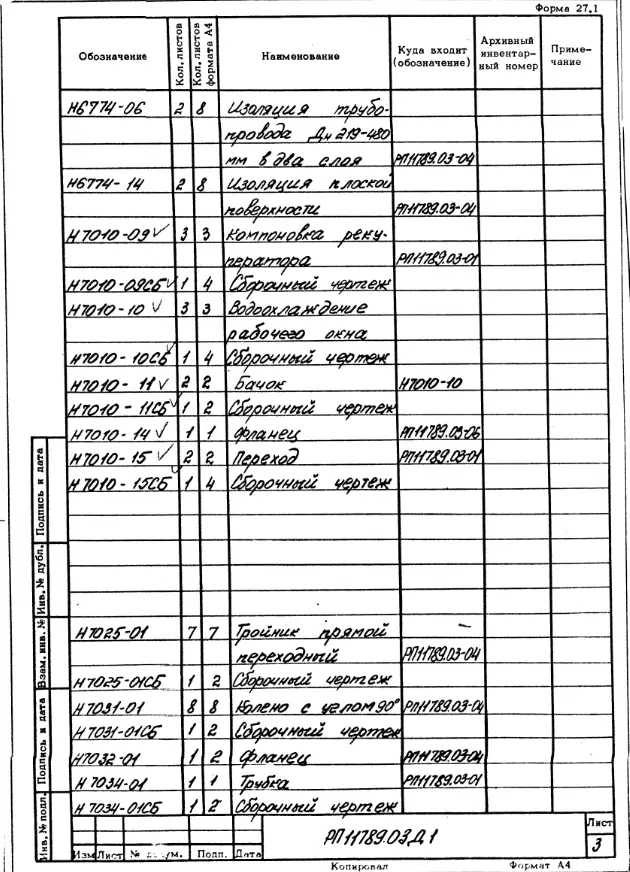 Форма 27.1
Обозначение Кол. листов Кол. листов формата А4 Наименование Куда входит (обозначение) Архивный инвентарный номер Примечание
Н6774-06 2 8 Изоляция трубо-
провода Дн 219-480
мм в два слоя РП11789.03-04
Н6774-14 2 8 Изоляция плоской
поверхности РП11789.03-04
Н7010-09 √ 3 3 Компоновка реку-
ператора РП11789.03-01
Н7010-09СБ √ 1 4 Сборочный чертеж
Н7010-10 √ 3 3 Водоохлаждение
рабочего окна
Н7010-10СБ √ 1 4 Сборочный чертеж
Н7010-11 √ 2 2 Бачок Н7010-10
Н7010-11СБ √ 1 2 Сборочный чертеж
Н7010-14 √ 1 1 Фланец РП11789.03-06
Н7010-15 √ 2 2 Переход РП11789.03-01
Н7010-15СБ √ 1 4 Сборочный чертеж
Н7025-01 7 7 Тройник прямой —
переходный РП11789.03-04
Н7025-01СБ 1 2 Сборочный чертеж
Н7031-01 8 8 Колено с углом 90° РП11789.03-04
Н7031-01СБ 1 2 Сборочный чертеж
Н7032-01 1 2 Фланец РП11789.03-04
Н7034-01 1 1 Трубка РП11789.03-01
Н7034-01СБ 1 2 Сборочный чертеж
Инв. № подл. Подпись и дата Взам. инв. № Инв. № дубл. Подпись и дата
РП11789.03Д1
Лист
3
Изм Лист Подп. Дата
Копировал Формат А4